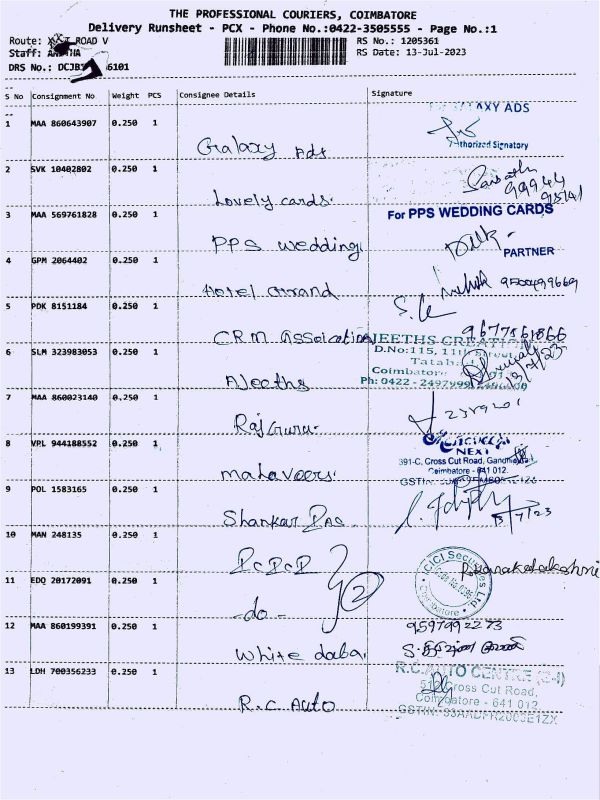 THE PROFESSIONAL COURIERS, COIMBATORE
Delivery Runsheet - PCX - Phone No.:0422-3505555 - Page No.:1
Route: ROAD V RS No.: 1205361
Staff: RS Date: 13-Jul-2023
DRS No.: 6101
S No Consignment No Weight PCS Consignee Details Signature
1 MAA 860643907 0.250 1 Galaxy Ads
GALAXY ADS
Authorized Signatory
2 SVK 10402802 0.250 1 Lovely cards.
99944
3 MAA 569761828 0.250 1 PPS wedding.
For PPS WEDDING CARDS
PARTNER
4 GPM 2064402 0.250 1 Hotel Grand
9500499669
5 PDK 8151184 0.250 1 CRM Assoication
9677561866
6 SLM 323983053 0.250 1 Ajeeths
AJEETHS CREATION
D.No:115, 11th Street,
Tatabad
Coimbatore
Ph: 0422 - 2497999
7 MAA 860023140 0.250 1 Raj Guru.
8 VPL 944188552 0.250 1 mahaveers.
NEXT
391-C, Cross Cut Road, Gandhipuram
Coimbatore - 641 012.
9 POL 1583165 0.250 1 Shankar
13/7/23
10 MAN 248135 0.250 1 DCDCD
ICICI Securities Ltd.
Coimbatore
11 EDQ 20172091 0.250 1 -do- 2
12 MAA 860199391 0.250 1 White daba.
9597992273
13 LDH 700356233 0.250 1 R.C Auto
R.C.AUTO CENTRE
512 Cross Cut Road,
Coimbatore - 641 012